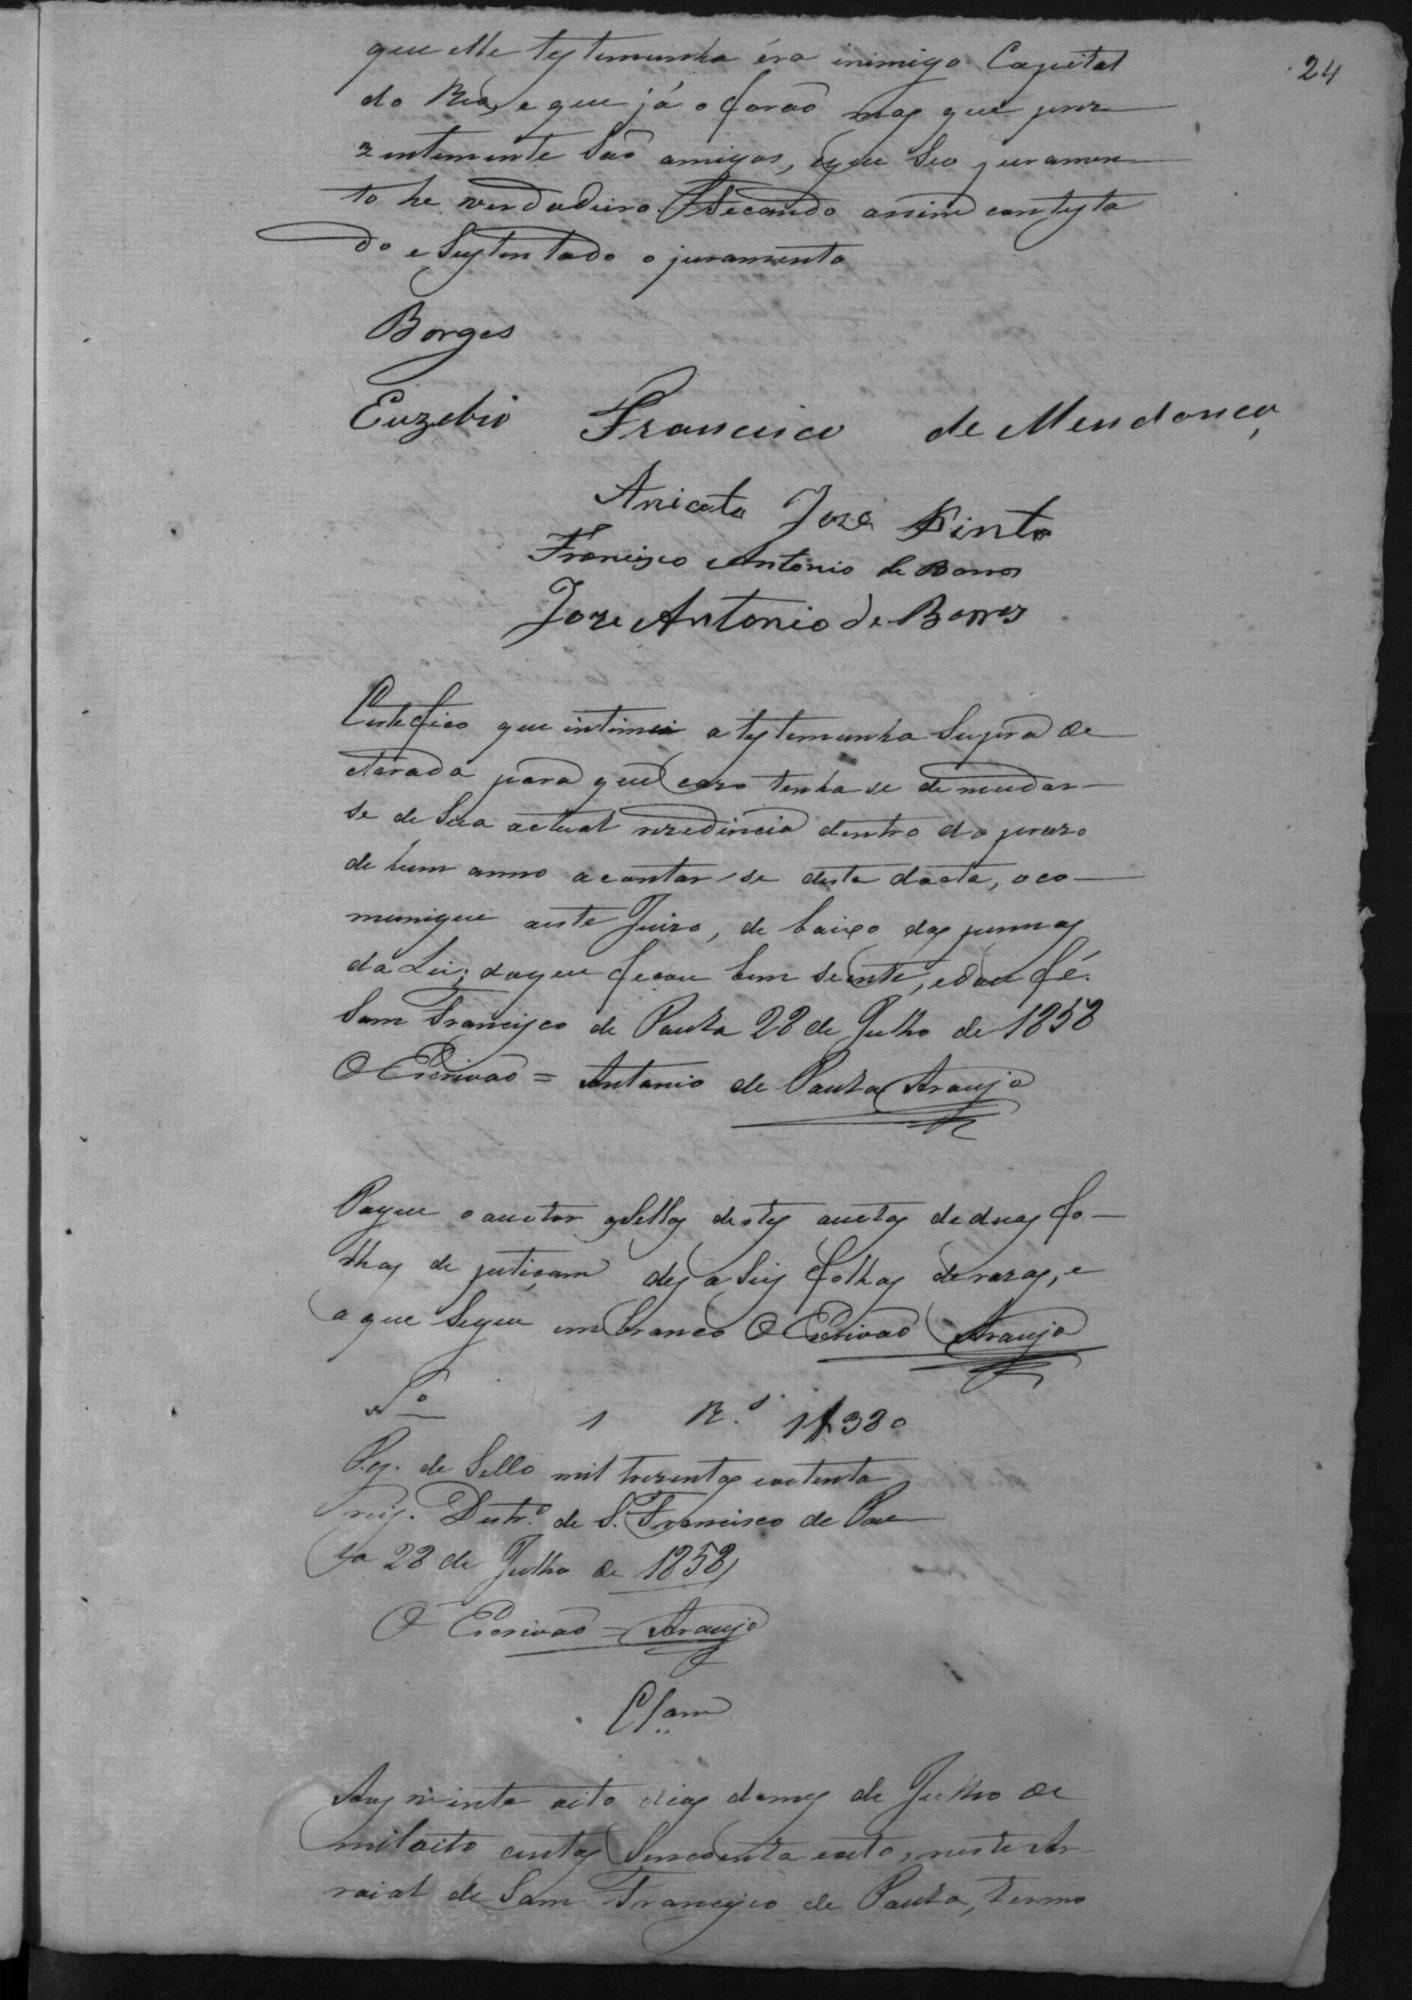 24
que elle testemunha éra inimigo Capital
do Reo, e que já o forão mas que prez
zentemente são amigos, e que seo juramen
to he verdadeiro. Ficando assim contesta
do e sustentado o juramento
Borges
Euzebio Francisco de Mendonça
Aniceto José Pinto
Francisco Antonio de Barros
Joze Antonio de Barros
Certefico que intimei a testemunha supra de
clarada para que cazo tenha se de mudar
se de sua actual rezidencia dentro do prazo
de hum anno a contar-se desta dacta, o co
munique a este Juizo, de baixo das pennas
da Lei; do que ficou bem sciente, e dou fé.
Sam Francisco de Paula 28 de Julho de 1858
O Escrivão = Antonio de Paula Araujo
Pague o auctor o sello destes auctos de duas fo
lhas de petiçam des a seis folhas de razas, e
a que segue em branco O Escrivão Araujo
Nº 1 R.s 1$380
Pg. de Sello mil trezentos e oitenta
reis. Distr.º de S. Francisco de Pau
la 28 de Julho de 1858
O Escrivão = Araujo
Clsam
Aos vinte oito dias do mes de Julho de
mil oito centos sincoenta e oito, neste Ar
raial de Sam Francisco de Paula, termo